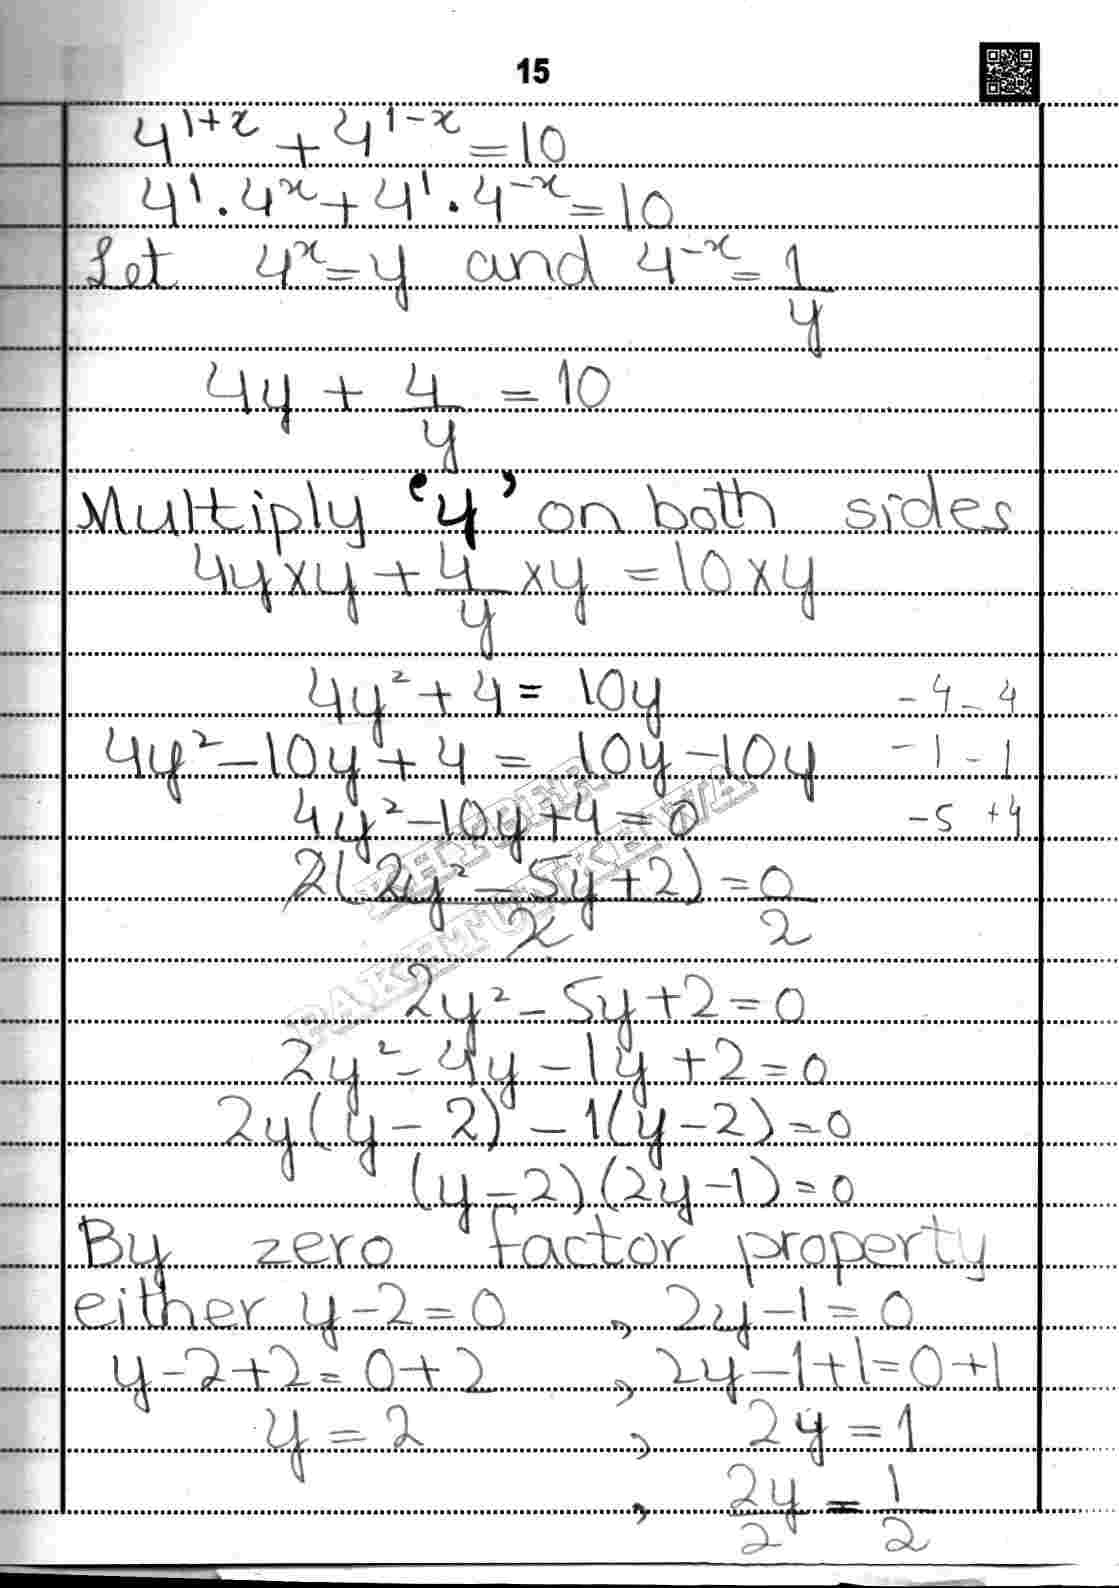 15
4^{1+x} + 4^{1-x} = 10
4^1 . 4^x + 4^1 . 4^{-x} = 10
Let 4^x = y and 4^{-x} = 1/y
4y + 4/y = 10
Multiply 'y' on both sides
4y×y + 4/y ×y = 10×y
4y² + 4 = 10y
-4 -4
4y² - 10y + 4 = 10y - 10y
-1 -1
4y² - 10y + 4 = 0
-5 +4
2(2y² - 5y + 2)/2 = 0/2
KHYBER
PAKHTUNKHWA
2y² - 5y + 2 = 0
2y² - 4y - 1y + 2 = 0
2y(y - 2) - 1(y - 2) = 0
(y - 2)(2y - 1) = 0
By zero factor property
either y - 2 = 0 , 2y - 1 = 0
y - 2 + 2 = 0 + 2 , 2y - 1 + 1 = 0 + 1
y = 2 , 2y = 1
, 2y/2 = 1/2